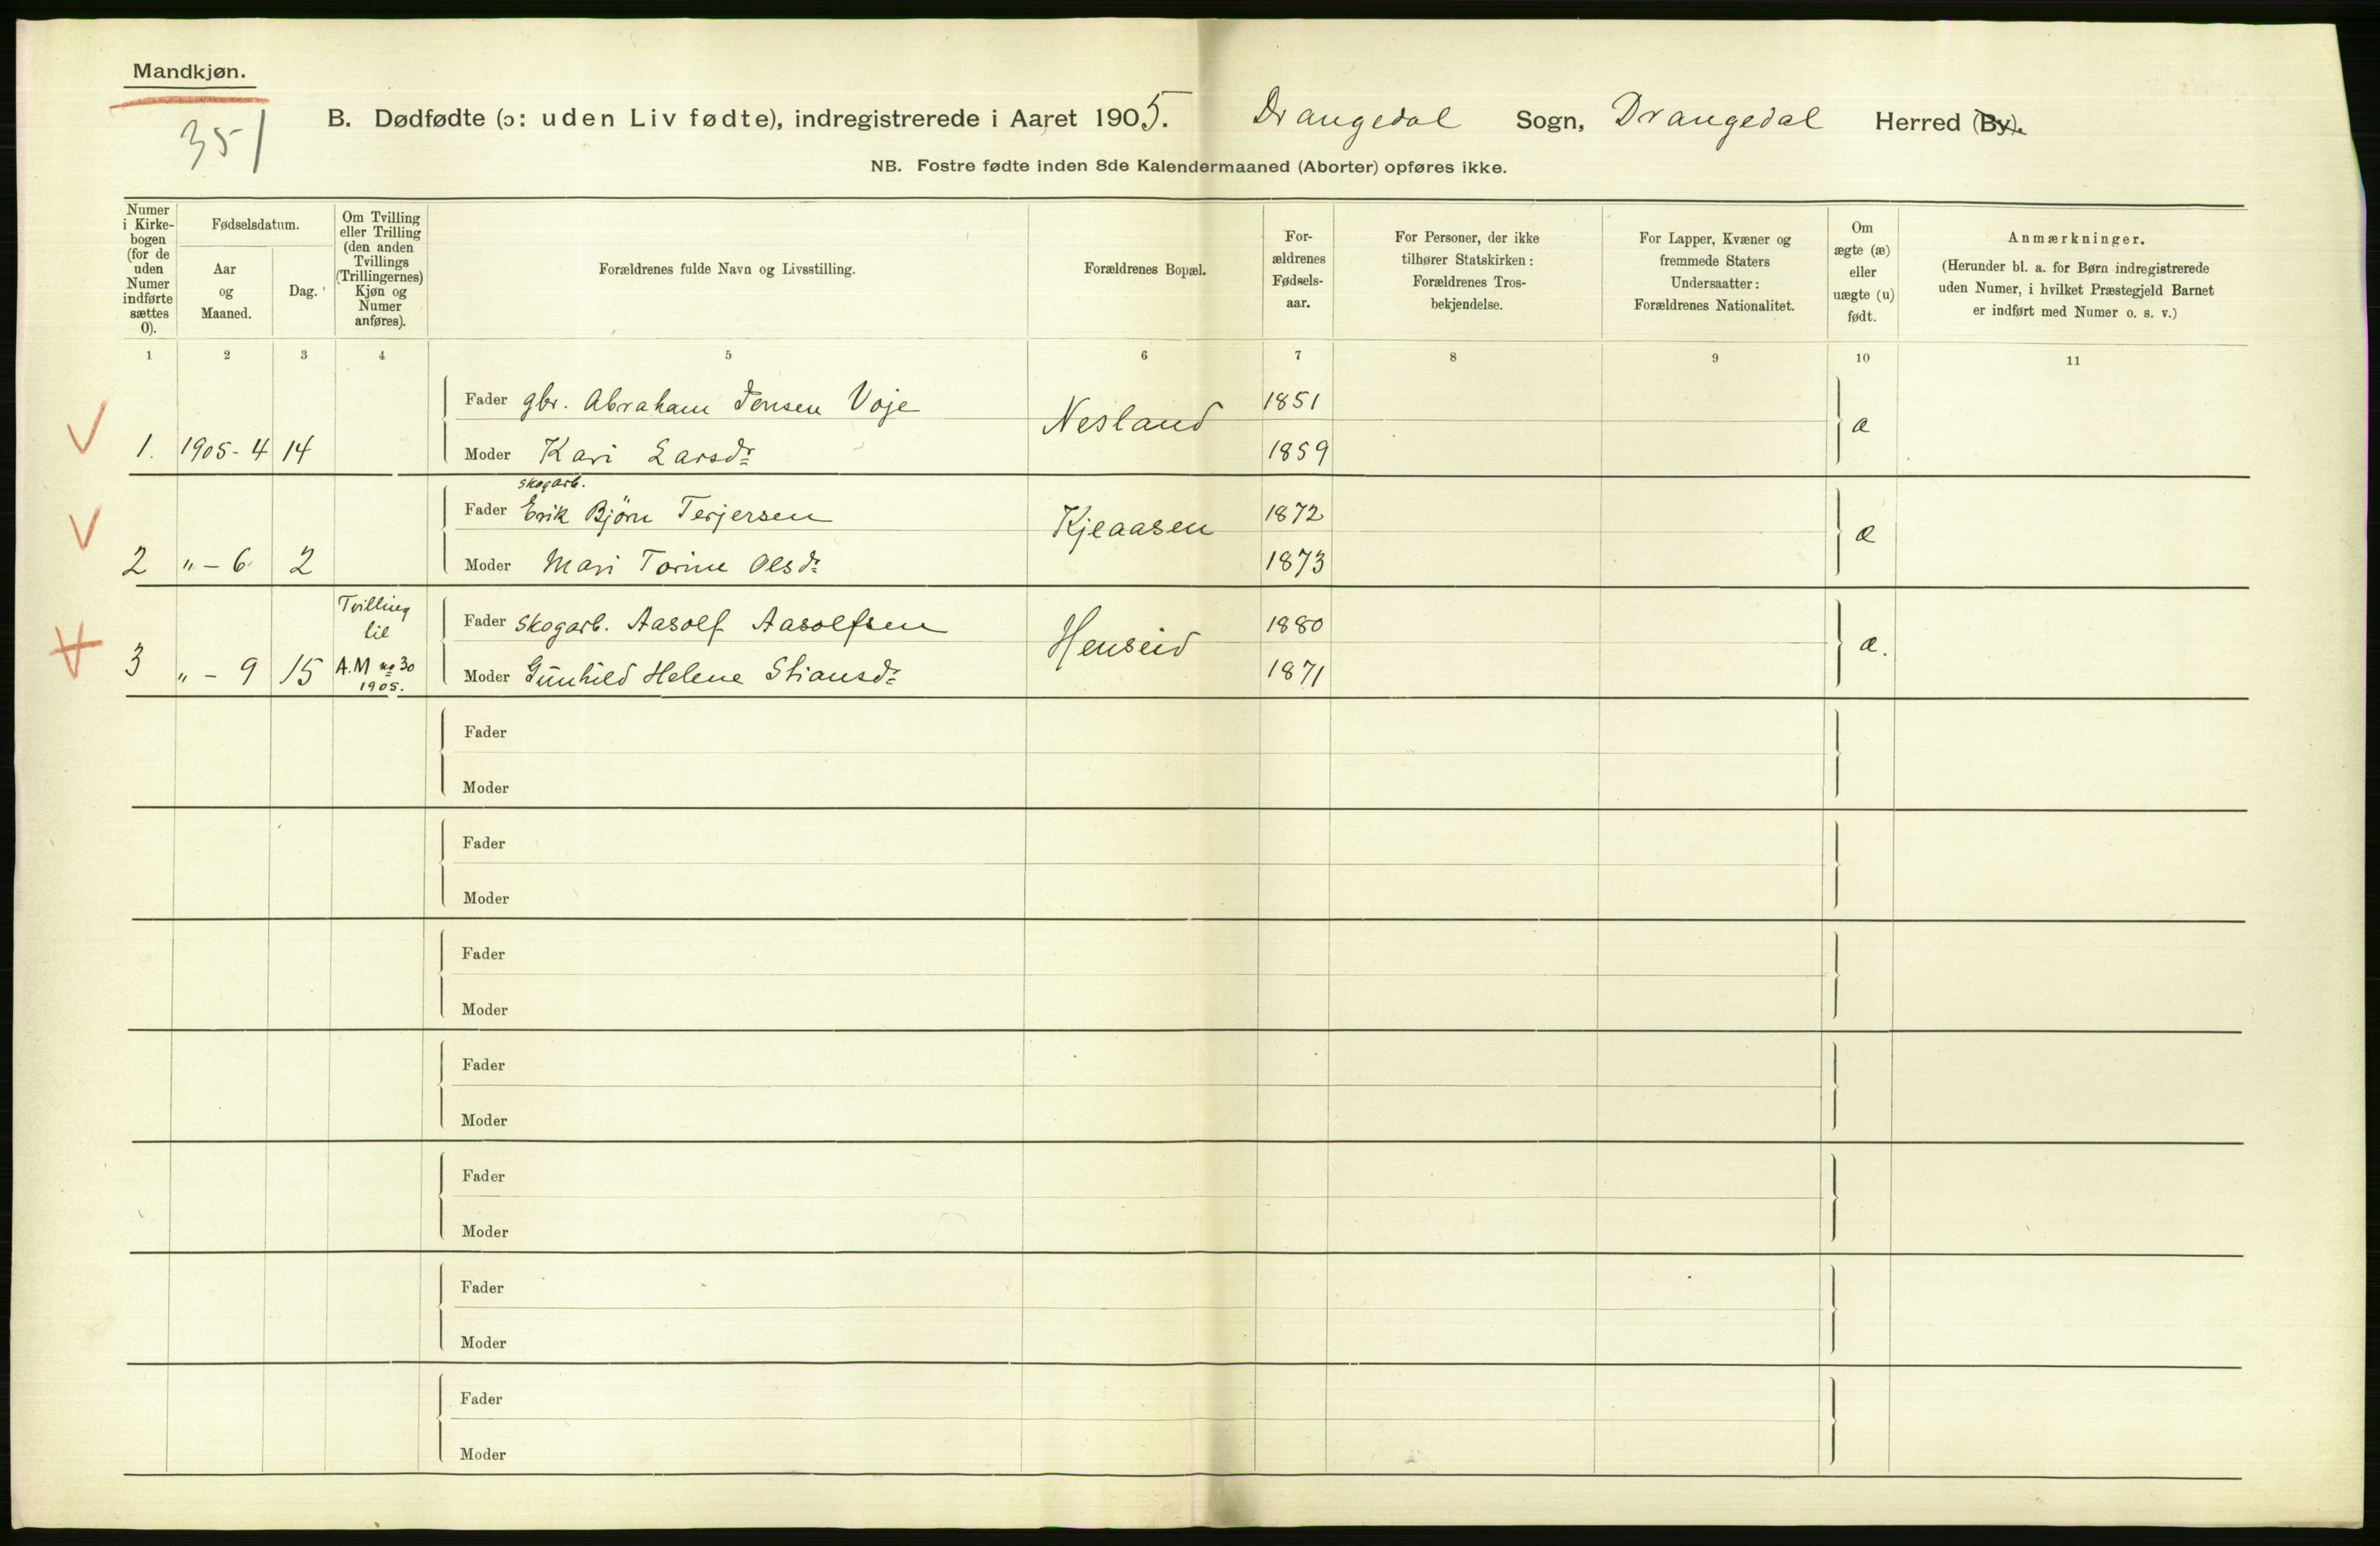 Mandkjøn.
351
B. Dødfødte (ɔ: uden Liv fødte), indregistrerede i Aaret 1905. Drangedal Sogn, Drangedal Herred (By).
NB. Fostre fødte inden 8de Kalendermaaned (Aborter) opføres ikke.
Numer
i Kirke-
bogen
(for de
uden
Numer
indførte
sættes
0).
Fødselsdatum.
Aar
og
Maaned.
Dag.
Om Tvilling
eller Trilling
(den anden
Tvillings
(Trillingernes)
Kjøn og
Numer
anføres).
Forældrenes fulde Navn og Livsstilling.
Forældrenes Bopæl.
For-
ældrenes
Fødsels-
aar.
For Personer, der ikke
tilhører Statskirken:
Forældrenes Tros-
bekjendelse.
For Lapper, Kvæner og
fremmede Staters
Undersaatter:
Forældrenes Nationalitet.
Om
ægte (æ)
eller
uægte (u)
født.
Anmærkninger.
(Herunder bl. a. for Børn indregistrerede
uden Numer, i hvilket Præstegjeld Barnet
er indført med Numer o. s. v.)
1 2 3 4 5 6 7 8 9 10 11
Fader gbr. Abraham Jensen Voje Nesland 1851 æ
1. 1905-4 14 Moder Kari Larsdr 1859
skogarb.
Fader Erik Bjørn Terjersen Kjeaasen 1872 æ
2 " - 6 2 Moder Mari Torine Olsdr 1873
Tvilling
til
Fader skogarb. Aasolf Aasolfsen Henseid 1880 æ.
3 " - 9 15 A.M no 30
1905.
Moder Gunhild Helene Stiansdr 1871
Fader
Moder
Fader
Moder
Fader
Moder
Fader
Moder
Fader
Moder
Fader
Moder
Fader
Moder